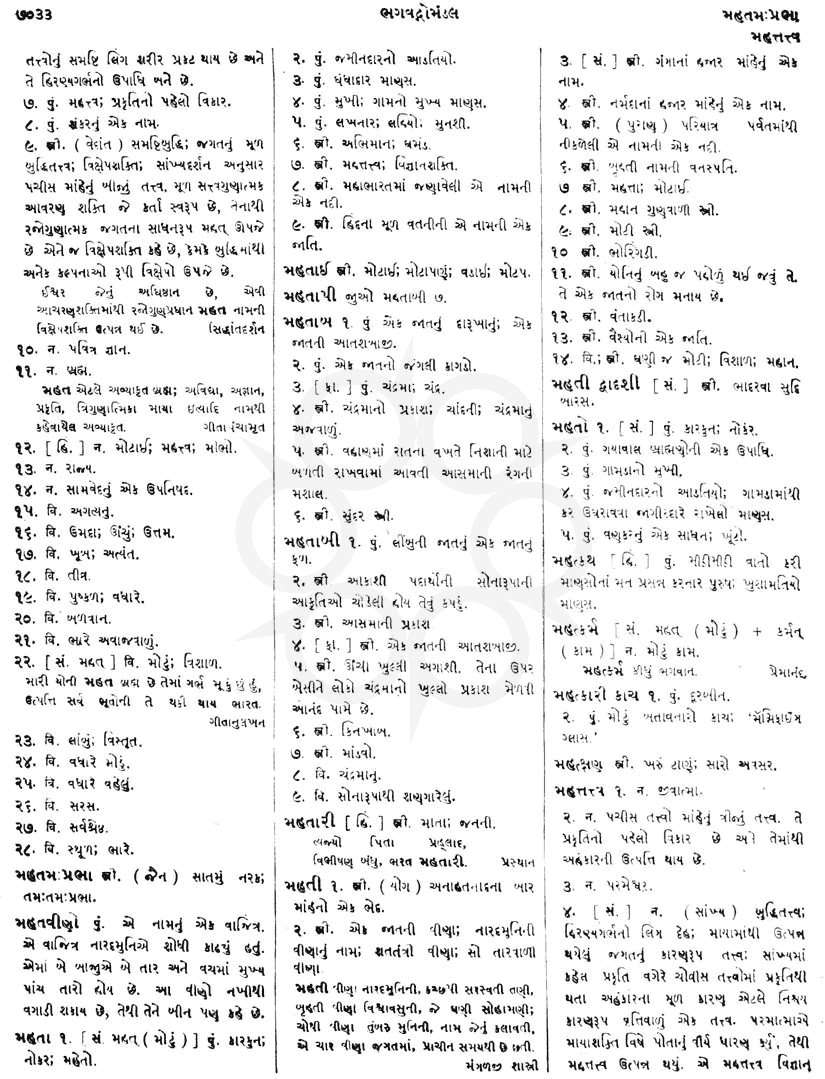 ૭૦૩૩
ભગવદ્ગોમંડલ
મહતમ:પ્રભા
મહત્તત્ત્વ
તત્ત્વોનું સમષ્ટિ લિંગ શરીર પ્રકટ થાય છે અને
તે હિરણ્યગર્ભનો ઉપાધિ બને છે.
૭. પું. મહત્તત્ત્વ; પ્રકૃતિનો પહેલો વિકાર.
૮. પું. શંકરનું એક નામ.
૯. સ્ત્રી. ( વેદાંત ) સમષ્ટિબુદ્ધિ; જગતનું મૂળ
બુદ્ધિતત્ત્વ; વિક્ષેપશક્તિ; સાંખ્યદર્શન અનુસાર
પચીસ માંહેનું બીજું તત્ત્વ. મૂળ સત્ત્વગુણાત્મક
આવરણ શક્તિ જે કર્તા સ્વરૂપ છે, તેનાથી
રજોગુણાત્મક જગતના સાધનરૂપ મહત્ ઊપજે
છે એને જ વિક્ષેપશક્તિ કહે છે, કેમકે બુદ્ધિમાંથી
અનેક કલ્પનાઓ રૂપી વિક્ષેપો ઉપજે છે.
ઈશ્વર જેનું અધિષ્ઠાન છે, એવી
આવરણશક્તિમાંથી રજોગુણપ્રધાન મહત નામની
વિક્ષેપશક્તિ ઉત્પન્ન થઈ છે. સિદ્ધાંતદર્શન
૧૦. ન. પવિત્ર જ્ઞાન.
૧૧. ન. બ્રહ્મ.
મહત એટલે અવ્યાકૃત બ્રહ્મ; અવિદ્યા, અજ્ઞાન,
પ્રકૃતિ, ત્રિગુણાત્મિકા માયા ઇત્યાદિ નામથી
કહેવાયેલ અવ્યાકૃત. ગીતાપંચામૃત
૧૨. [ હિં. ] ન. મોટાઈ; મહત્ત્વ; મોભો.
૧૩. ન. રાજ્ય.
૧૪. ન. સામવેદનું એક ઉપનિષદ.
૧૫. વિ. અગત્યનું.
૧૬. વિ. ઉમદા; ઊંચું; ઉત્તમ.
૧૭. વિ. ખૂબ; અત્યંત.
૧૮. વિ. તીવ્ર.
૧૯. વિ. પુષ્કળ; વધારે.
૨૦. વિ. બળવાન.
૨૧. વિ. ભારે અવાજવાળું.
૨૨. [ સં. મહત્ ] વિ. મોટું; વિશાળ.
મારી યોની મહત બ્રહ્મ છે તેમાં ગર્ભ મૂકું છું હું,
ઉત્પત્તિ સર્વ ભૂતોની તે થકી થાય ભારત.
૨૩. વિ. લાંબું; વિસ્તૃત.
૨૪. વિ. વધારે મોટું.
૨૫. વિ. વધારે વહેલું.
૨૬. વિ. સરસ.
૨૭. વિ. સર્વશ્રેષ્ઠ.
૨૮. વિ. સ્થૂળ; ભારે.
મહતમ:પ્રભા સ્ત્રી. ( જૈન ) સાતમું નરક;
તમ:તમ:પ્રભા.
મહતવીણો પું. એ નામનું એક વાજિંત્ર.
એ વાજિંત્ર નારદમુનિએ શોધી કાઢ્યું હતું.
એમાં બે બાજુએ બે તાર અને વચમાં મુખ્ય
પાંચ તારો હોય છે. આ વીણો નખીથી
વગાડી શકાય છે, તેથી તેને બીન પણ કહે છે.
મહતા ૧. [ સં. મહત્ ( મોટું ) ] પું. કારકુન;
નોકર; મહેતો.
૨. પું. જમીનદારનો આડતિયો.
૩. પું. ધંધાદાર માણસ.
૪. પું. મુખી; ગામનો મુખ્ય માણસ.
૫. પું. લખનાર; લહિયો; મુનશી.
૬. સ્ત્રી. અભિમાન; ઘમંડ.
૭. સ્ત્રી. મહત્તત્ત્વ; વિજ્ઞાનશક્તિ.
૮. સ્ત્રી. મહાભારતમાં જણાવેલી એ નામની
એક નદી.
૯. સ્ત્રી. હિંદના મૂળ વતનીની એ નામની એક
જાતિ.
મહતાઈ સ્ત્રી. મોટાઈ; મોટાપણું; વડાઈ; મોટપ.
મહતાપી જુઓ મહતાબી ૭.
મહતાબ ૧. પું એક જાતનું દારૂખાનું; એક
જાતની આતશબાજી.
૨. પું. એક જાતનો જંગલી કાગડો.
૩. [ ફા. ] પું. ચંદ્રમા; ચંદ્ર.
૪. સ્ત્રી. ચંદ્રમાનો પ્રકાશ; ચાંદની; ચંદ્રમાનું
અજવાળું.
૫. સ્ત્રી. વહાણમાં રાતના વખતે નિશાની માટે
બળતી રાખવામાં આવતી આસમાની રંગની
મશાલ.
૬. સ્ત્રી. સુંદર સ્ત્રી.
મહતાબી ૧. પું. લીંબુની જાતનું એક જાતનું
ફળ.
૨. સ્ત્રી આકાશી પદાર્થોની સોનારૂપાની
આકૃતિઓ ચોડેલી હોય તેવું કપડું.
૩. સ્ત્રી. આસમાની પ્રકાશ
૪. [ ફા. ] સ્ત્રી. એક જાતની આતશબાજી.
૫. સ્ત્રી. ઊંચી ખુલ્લી અગાશી. તેના ઉપર
બેસીને લોકો ચંદ્રમાનો ખુલ્લો પ્રકાશ મેળવી
આનંદ પામે છે.
૬. સ્ત્રી. કિનખાબ.
૭. સ્ત્રી. માંડવો.
૮. વિ. ચંદ્રમાનું.
૯. વિ. સોનારૂપાથી શણગારેલું.
મહતારી [ હિં. ] સ્ત્રી. માતા; જનની.
ત્યજ્યો પિતા પ્રહ્લાદ,
વિભીષણ બંધુ, ભરત મહતારી. પ્રસ્થાન
મહતી ૧. સ્ત્રી. ( યોગ ) અનાહતનાદના બાર
માંહેનો એક ભેદ.
૨. સ્ત્રી. એક જાતની વીણા; નારદમુનિની
વીણાનું નામ; શતતંત્રી વીણા; સો તારવાળી
વીણા
મહતી વીણા નારદમુનિની, કચ્છપી સરસ્વતી તણી,
બૃહતી વીણા વિશ્વાવસુની, જે ઘણી સોહામણી;
ચોથી વીણા તુંબરુ મુનિની, નામ જેનું કલાવતી,
એ ચાર વીણા જગતમાં, પ્રાચીન સમયથી છે છતી.
મંગળજી શાસ્ત્રી
૩. [ સં. ] સ્ત્રી. ગંગાનાં હજાર માંહેનું એક
નામ.
૪. સ્ત્રી. નર્મદાનાં હજાર માંહેનું એક નામ.
૫. સ્ત્રી. ( પુરાણ ) પરિયાત્ર પર્વતમાંથી
નીકળેલી એ નામની એક નદી.
૬. સ્ત્રી. બૃહતી નામની વનસ્પતિ.
૭ સ્ત્રી. મહત્તા; મોટાઈ.
૮. સ્ત્રી. મહાન ગુણવાળી સ્ત્રી.
૯. સ્ત્રી. મોટી સ્ત્રી.
૧૦ સ્ત્રી. ભોરિંગડી.
૧૧. સ્ત્રી. યોનિનું બહુ જ પહોળું થઈ જવું તે.
તે એક જાતનો રોગ મનાય છે.
૧૨. સ્ત્રી. વંતાકડી.
૧૩. સ્ત્રી. વૈશ્યોની એક જાતિ.
૧૪. વિ.; સ્ત્રી. ઘણી જ મોટી; વિશાળ; મહાન.
મહતી દ્વાદશી [ સં. ] સ્ત્રી. ભાદરવા સુદિ
બારસ.
મહતો ૧. [ સં. ] પું. કારકુન; નોકર.
૨. પું. ગયાવાલ બ્રાહ્મણોની એક ઉપાધિ.
૩. પું. ગામડાનો મુખી.
૪. પું. જમીનદારનો આડતિયો; ગામડામાંથી
કર ઉઘરાવવા જાગીરદારે રાખેલો માણસ.
૫. પું. વણકરનું એક સાધન; ખૂંટો.
મહત્કથ [ હિં. ] પું. મીઠીમીઠી વાતો કરી
માણસોનાં મન પ્રસન્ન કરનાર પુરુષ; ખુશામતિયો
માણસ.
મહત્કર્મ [ સં. મહત્ ( મોટું ) + કર્મન્
( કામ ) ] ન. મોટું કામ.
મહત્કર્મ કીધું ભગવાન. પ્રેમાનંદ
મહત્કારી કાચ ૧. પું. દૂરબીન.
૨. પું. મોટું બતાવનારો કાચ; ‘મૅગ્નિફાઈંગ
ગ્લાસ.’
મહત્ક્ષણ સ્ત્રી. ખરું ટાણું; સારો અવસર.
મહત્તત્ત્વ ૧. ન. જીવાત્મા.
૨. ન. પચીસ તત્ત્વો માંહેનું ત્રીજું તત્ત્વ. તે
પ્રકૃતિનો પહેલો વિકાર છે અને તેમાંથી
અહંકારની ઉત્પત્તિ થાય છે.
૩. ન. પરમેશ્વર.
૪. [ સં. ] ન. ( સાંખ્ય ) બુદ્ધિતત્ત્વ;
હિરણ્યગર્ભનો લિંગ દેહ; માયામાંથી ઉત્પન્ન
થયેલું જગતનું કારણરૂપ તત્ત્વ; સાંખ્યમાં
કહેલ પ્રકૃતિ વગેરે ચોવીસ તત્ત્વોમાં પ્રકૃતિથી
થતા અહંકારના મૂળ કારણ એટલે નિશ્ચય
કારણરૂપ વૃત્તિવાળું એક તત્ત્વ. પરમાત્માએ
માયાશક્તિ વિષે પોતાનું વીર્ય ધારણ કર્યું, તેથી
મહત્તત્ત્વ ઉત્પન્ન થયું. એ મહત્તત્ત્વ વિજ્ઞાન